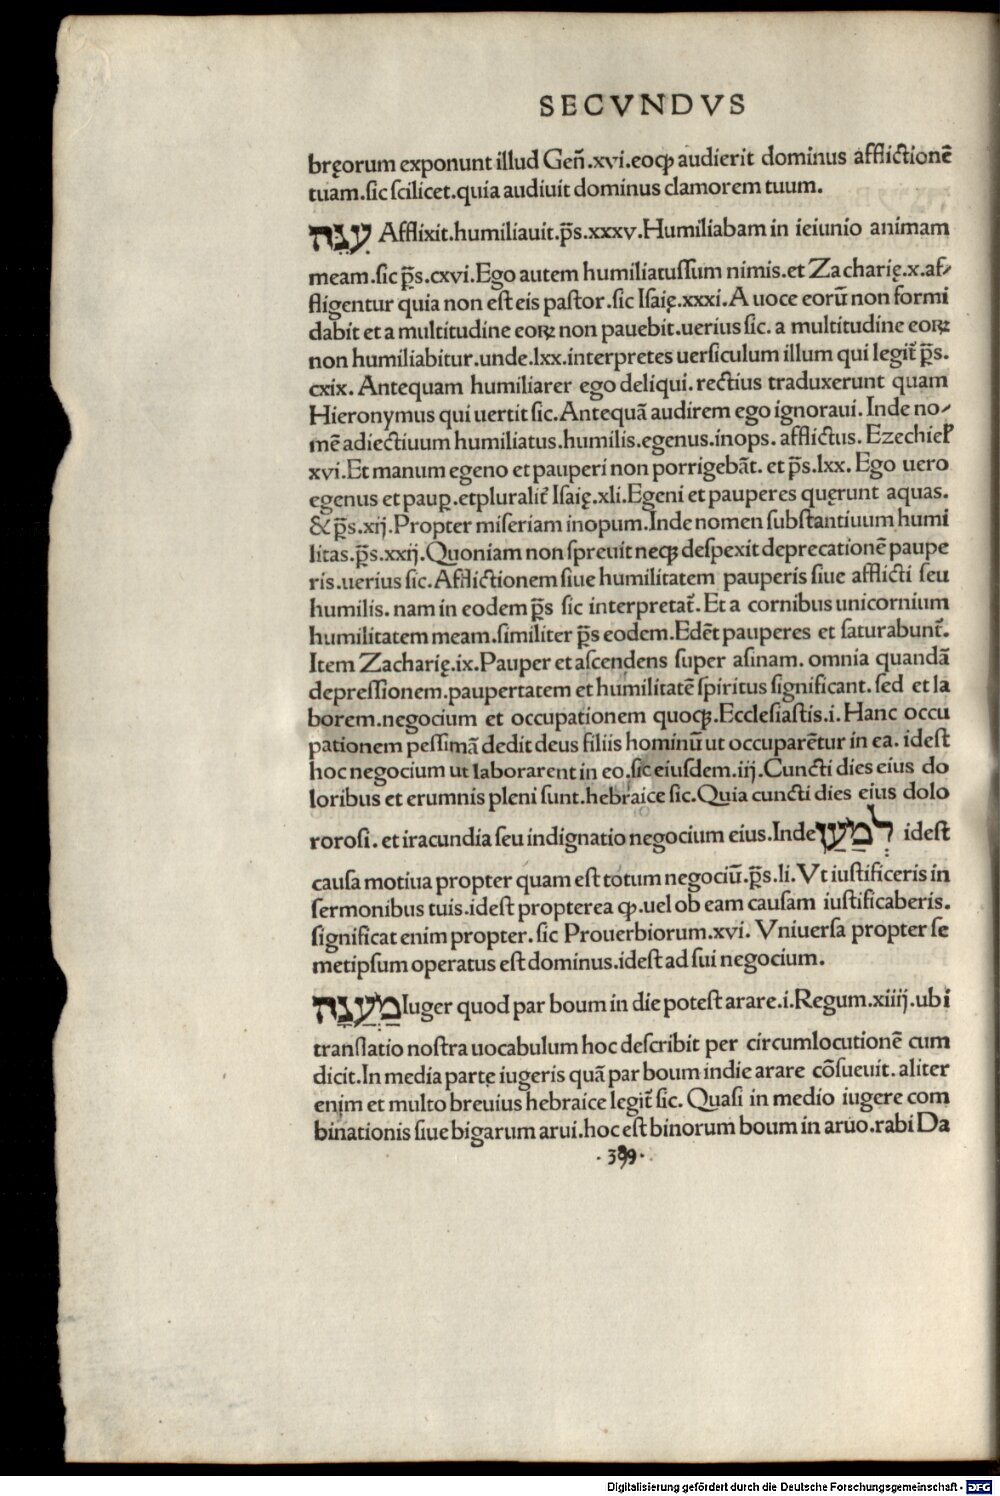 SECVNDVS
bręorum exponunt illud Geñ.xvi.eoꝙ audierit dominus afflictionẽ
tuam.sic scilicet.quia audiuit dominus clamorem tuum.
עִנָּה Afflixit.humiliauit.p̃s.xxxv.Humiliabam in ieiunio animam
meam.sic p̃s.cxvi.Ego autem humiliatus sum nimis.et Zacharię.x.af⸗
fligentur quia non est eis pastor.sic Isaię.xxxi.A uoce eorũ non formi
dabit et a multitudine eoꝝ non pauebit.uerius sic. a multitudine eoꝝ
non humiliabitur.unde.lxx.interpretes uersiculum illum qui legit̃ p̃s.
cxix. Antequam humiliarer ego deliqui. rectius traduxerunt quam
Hieronymus qui uertit sic.Antequã audirem ego ignoraui. Inde no⸗
mẽ adiectiuum humiliatus.humilis.egenus.inops. afflictus. Ezechieł
xvi.Et manum egeno et pauperi non porrigebãt. et p̃s.lxx. Ego uero
egenus et pauꝑ.et pluralit̃ Isaię.xli.Egeni et pauperes quęrunt aquas.
& p̃s.xij.Propter miseriam inopum.Inde nomen substantiuum humi
litas.p̃s.xxij.Quoniam non spreuit neqꝫ despexit deprecationẽ paupe
ris.uerius sic.Afflictionem siue humilitatem pauperis siue afflicti seu
humilis. nam in eodem p̃s sic interpretat̃. Et a cornibus unicornium
humilitatem meam.similiter p̃s eodem.Edẽt pauperes et saturabunt̃.
Item Zacharię.ix.Pauper et ascendens super asinam. omnia quandã
depressionem.paupertatem et humilitatẽ spiritus significant. sed et la
borem.negocium et occupationem quoqꝫ.Ecclesiastis.i. Hanc occu
pationem pessimã dedit deus filiis hominũ ut occuparẽtur in ea. idest
hoc negocium ut laborarent in eo.sic eiusdem.iij.Cuncti dies eius do
loribus et erumnis pleni sunt.hebraice sic.Quia cuncti dies eius dolo
rorosi. et iracundia seu indignatio negocium eius.Inde לְמַעַן idest
causa motiua propter quam est totum negociũ.p̃s.li.Vt iustificeris in
sermonibus tuis.idest propterea ꝙ.uel ob eam causam iustificaberis.
significat enim propter. sic Prouerbiorum.xvi. Vniuersa propter se
metipsum operatus est dominus.idest ad sui negocium.
מַעֲנָה Iuger quod par boum in die potest arare.i.Regum.xiiij.ubi
translatio nostra uocabulum hoc describit per circumlocutionẽ cum
dicit.In media parte iugeris quã par boum in die arare cõsueuit. aliter
enim et multo breuius hebraice legit̃ sic. Quasi in medio iugere com
binationis siue bigarum arui.hoc est binorum boum in aruo.rabi Da
·389·
Digitalisierung gefördert durch die Deutsche Forschungsgemeinschaft - DFG